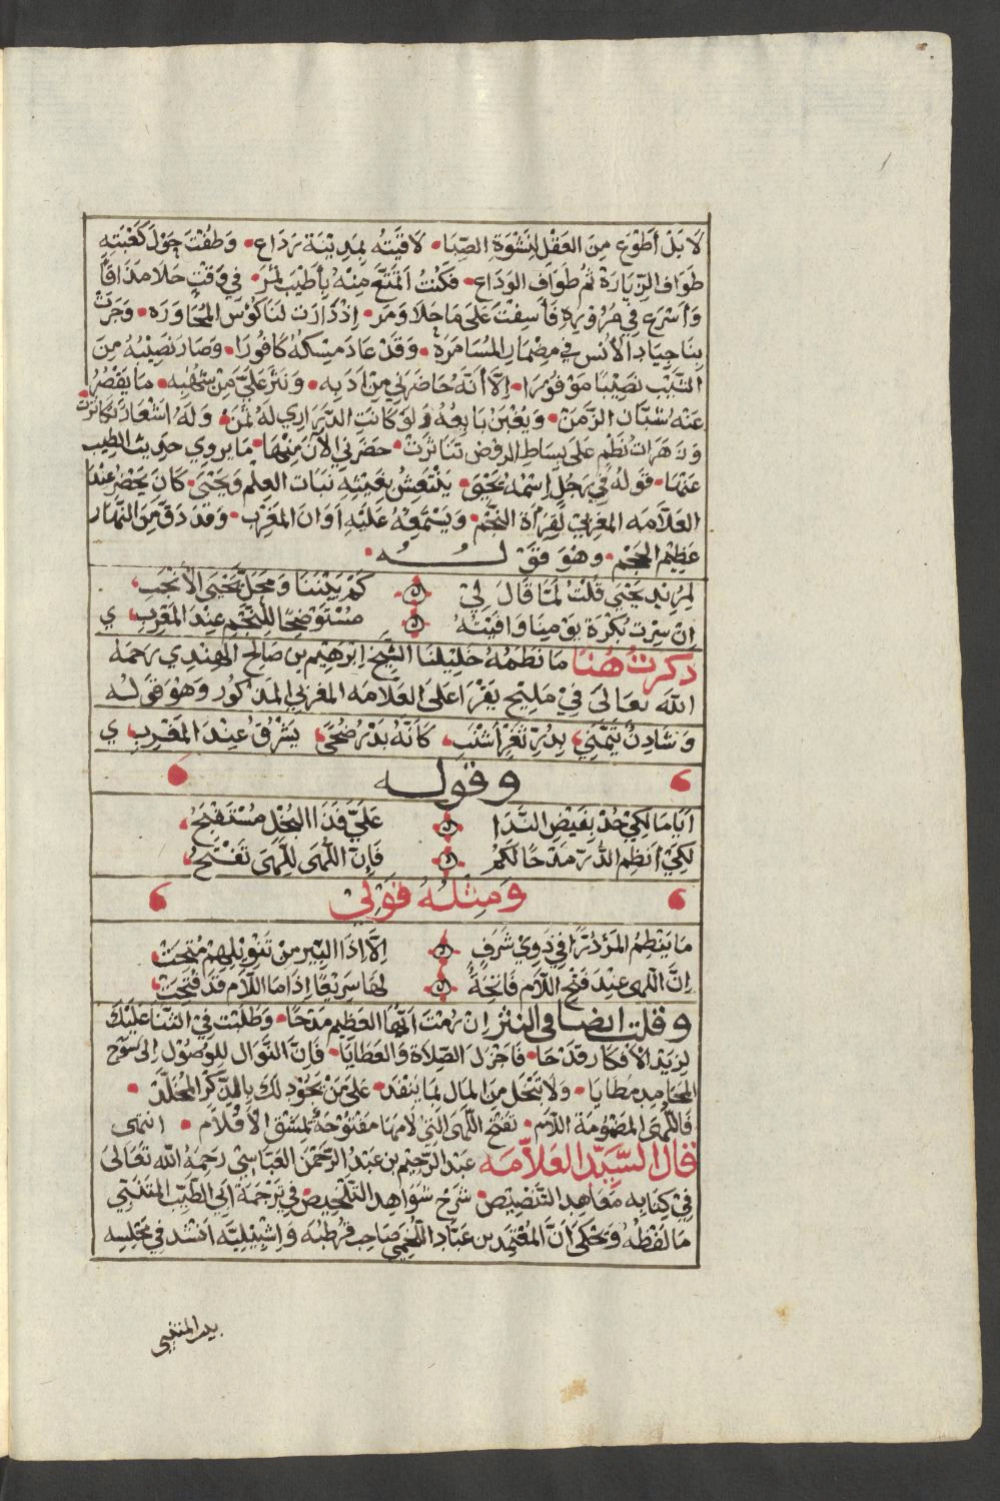 لَا بَلْ أَطْوَعَ مِنَ العَقْلِ لِنَشْوَةِ الصِّبَا • لَاقَيْتُهُ بِمَدِيْنَةِ رَدَاع • وَطُفْتُ حَوْلَ كَعْبَتِهِ
طَوَافَ الزِّيَارَة ثُمَّ طَوَافَ الوَدَاع • فَكُنْتُ أَتَمَتَّع مِنْهُ بِأَطْيَب • فِي وَقْتٍ حَلَا مَذَاقًا
وَأَسْرَعَ فِي مُرُوْرِهِ فَأَسِفْتُ عَلَى مَا حَلَا وَمَر • إِذْ دَارَت لَنَا كُؤُس المُحَاوَرَه • وَجَرَتْ
بِنَا جِيَادُ الأُنْسِ فِي مِضْمَارِ المُسَامَرَة • وَقَدْ عَادَ مِسْكُهُ كَافُورَا • وَصَارَ نَصِيْبُهُ مِنَ
الشَّيْبِ نَصِيْبًا مَوْفُورَا • إِلَّا أَنَّهُ حَاضَرَنِي مِنْ أَدَبِه • وَنَثَرَ عَلَيَّ مِنْ شُهُبِه • مَا يَقْصُرُ
عَنْهُ شُبَّان الزَّمَن • وَيُغْبَنُ بَايِعُهُ وَلَو كَانَتِ الدَّرَارِي لَهُ ثَمَن • وَلَهُ أَشْعَار تَكَاثَرَت
وَزَهَرَات نَظْمٍ عَلَى بِسَاطِ الرَوْضِ تَنَاثَرَت • حَضَرَنِي الآن مِنْهَا • مَا يروي حديث الطيب
عَنْهَا • قَوْلُهُ فِي رَجُلٍ إِسْمُهُ يَحْيَى • يَنْتَعِشُ بِغَيْثِهِ نَبَات العِلْمِ وَيَحْيَى • كَانَ يَحْضُرُ عِنْدَ
العَلَّامَه المغربي لِقِرَأة النَّجْم • وَيَسْتَمِعُهُ عَلَيْهِ أَوَانَ المَغْرِب • وَقَدَ دَقَّ مِنَ النَّهَار
عَظِيْم الحَجْم • وَهُوَ قَوْلُـــهُ •
لِمُرِيْدِ يَحْيَى قُلْتُ لَمَّا قَالَ لِيْ كَمْ بَيْنَنَا وَمَحَلّ يَحْيَى الأَنْجَب
إِنْ سِرْتَ بُكْرَة يَوْمِنَا وَافَيْتَهُ مُسْتَوْضِحًا لِلنَّجْمِ عِنْدَ المَغْرِبِ ي
ذكرتُ هُنَا مَا نَظَمَهُ خَلِيْلُنَا الشَّيْخ إِبْرَهِيْم بن صَالِح الهِنْدِي رَحِمَهُ
اللَّه تَعَالَى فِيْ مَلِيْحٍ يَقْرَا عَلَى العَلَّامَه المغربي المَذكُور وَهُوَ قَوْلُـه
وَشَادِنٌ تَيَّمَنِي بِدُرِّ ثَغْرٍ أَشْنَبِ كَأَنَّهُ بَدْرُ ضُحَىً يَشْرُقُ عِنْدَ المَغْرِبِ ي
وقوله
أَيَا مَالِكِيْ جُدْ بِفَيْضِ النَّدَا عَلَيَّ فَذَا البُخْل مُسْتَقْبَحُ
لِكَيْ أَنْظِم الدُّرَّ مَدْحًا لَكُمْ فَإِنَّ اللُّهَى لِلَّهَى تَفْتَحُ
وَمِثْلُهُ قَوْلِيْ
مَا يَنْظِمُ المَرْءُ دُرًّا فِي ذَوِيْ شَرَفٍ إِلَّا إِذَا البِيْر مِنْ تَنْوِيْلِهِمْ مُتِحَتْ
إِنَّ اللُّهى عِنْدَ فَتْحِ اللَّامِ فَاتِحَةٌ لَهَا سَرِيْعًا إِذَا مَا اللَّام قَدْ فُتِحَتْ
وقلت ايضا في النثر إِنْ رُمْتَ أَيُّهَا العَظِيْم مَدْحَا • وَطَلَبْتَ فِي الثَّنَا عَلَيْكَ
لِزِنْدِ الأَفْكَار قَدْحَا • فَأَجْزِلِ الصِّلَاة وَالعَطَايَا • فَإِنَّ النَّوَال لِلوُصُوْل إِلَى سُوْحِ
المَحَامِدِ مَطَايَا • وَلَا تَبْخَل مِنَ المَال بِمَا يَنْفَد • عَلَى مَنْ يَجُوْد لَكَ بِالذِّكْرِ المُخَلَّدْ •
فَاللُّهَى المَضْمُوْمَة اللَّام • تَفْتَحُ اللَّهَى الَّتِيْ لَامُهَا مَفْتُوْحَةٌ بِمَشْقِ الأَقْلَام • انتهى
قَالَ السَّيِّد العَلَّامَه عَبْد الرَّحِيْم بن عَبْد الرَّحْمن العَبَّاسِيّ رَحِمَهُ اللَّه تَعَالَى
فِيْ كِتَابِهِ مَعَاهِد التَّنْصِيْص شَرْح شَوَاهِد التَّلْخِيْص فِي تَرْجَمَة أَبِي الطَّيِّب المُتَنَبِّي
مَا لَفْظُهُ وَيُحْكَى أَنَّ المُعْتَمِد بن عَبَّاد اللَّخْمِي صَاحِب قُرْطُبَه وَإِشْبِيْلِيَّه أَنْشَد فِي مَجْلِسِه
بيت المتنبي